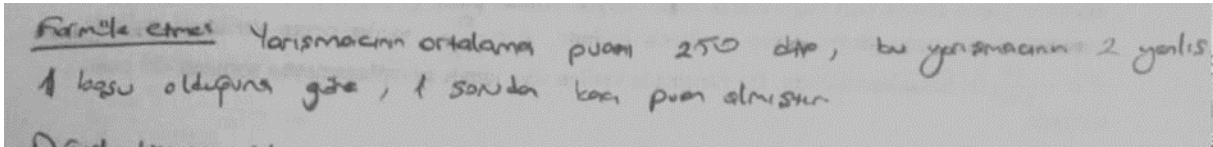 Formüle etme: Yarışmacının ortalama puanı 250 dir, bu yarışmacının 2 yanlış
1 boşu olduğuna göre, 1 sorudan kaç puan almıştır